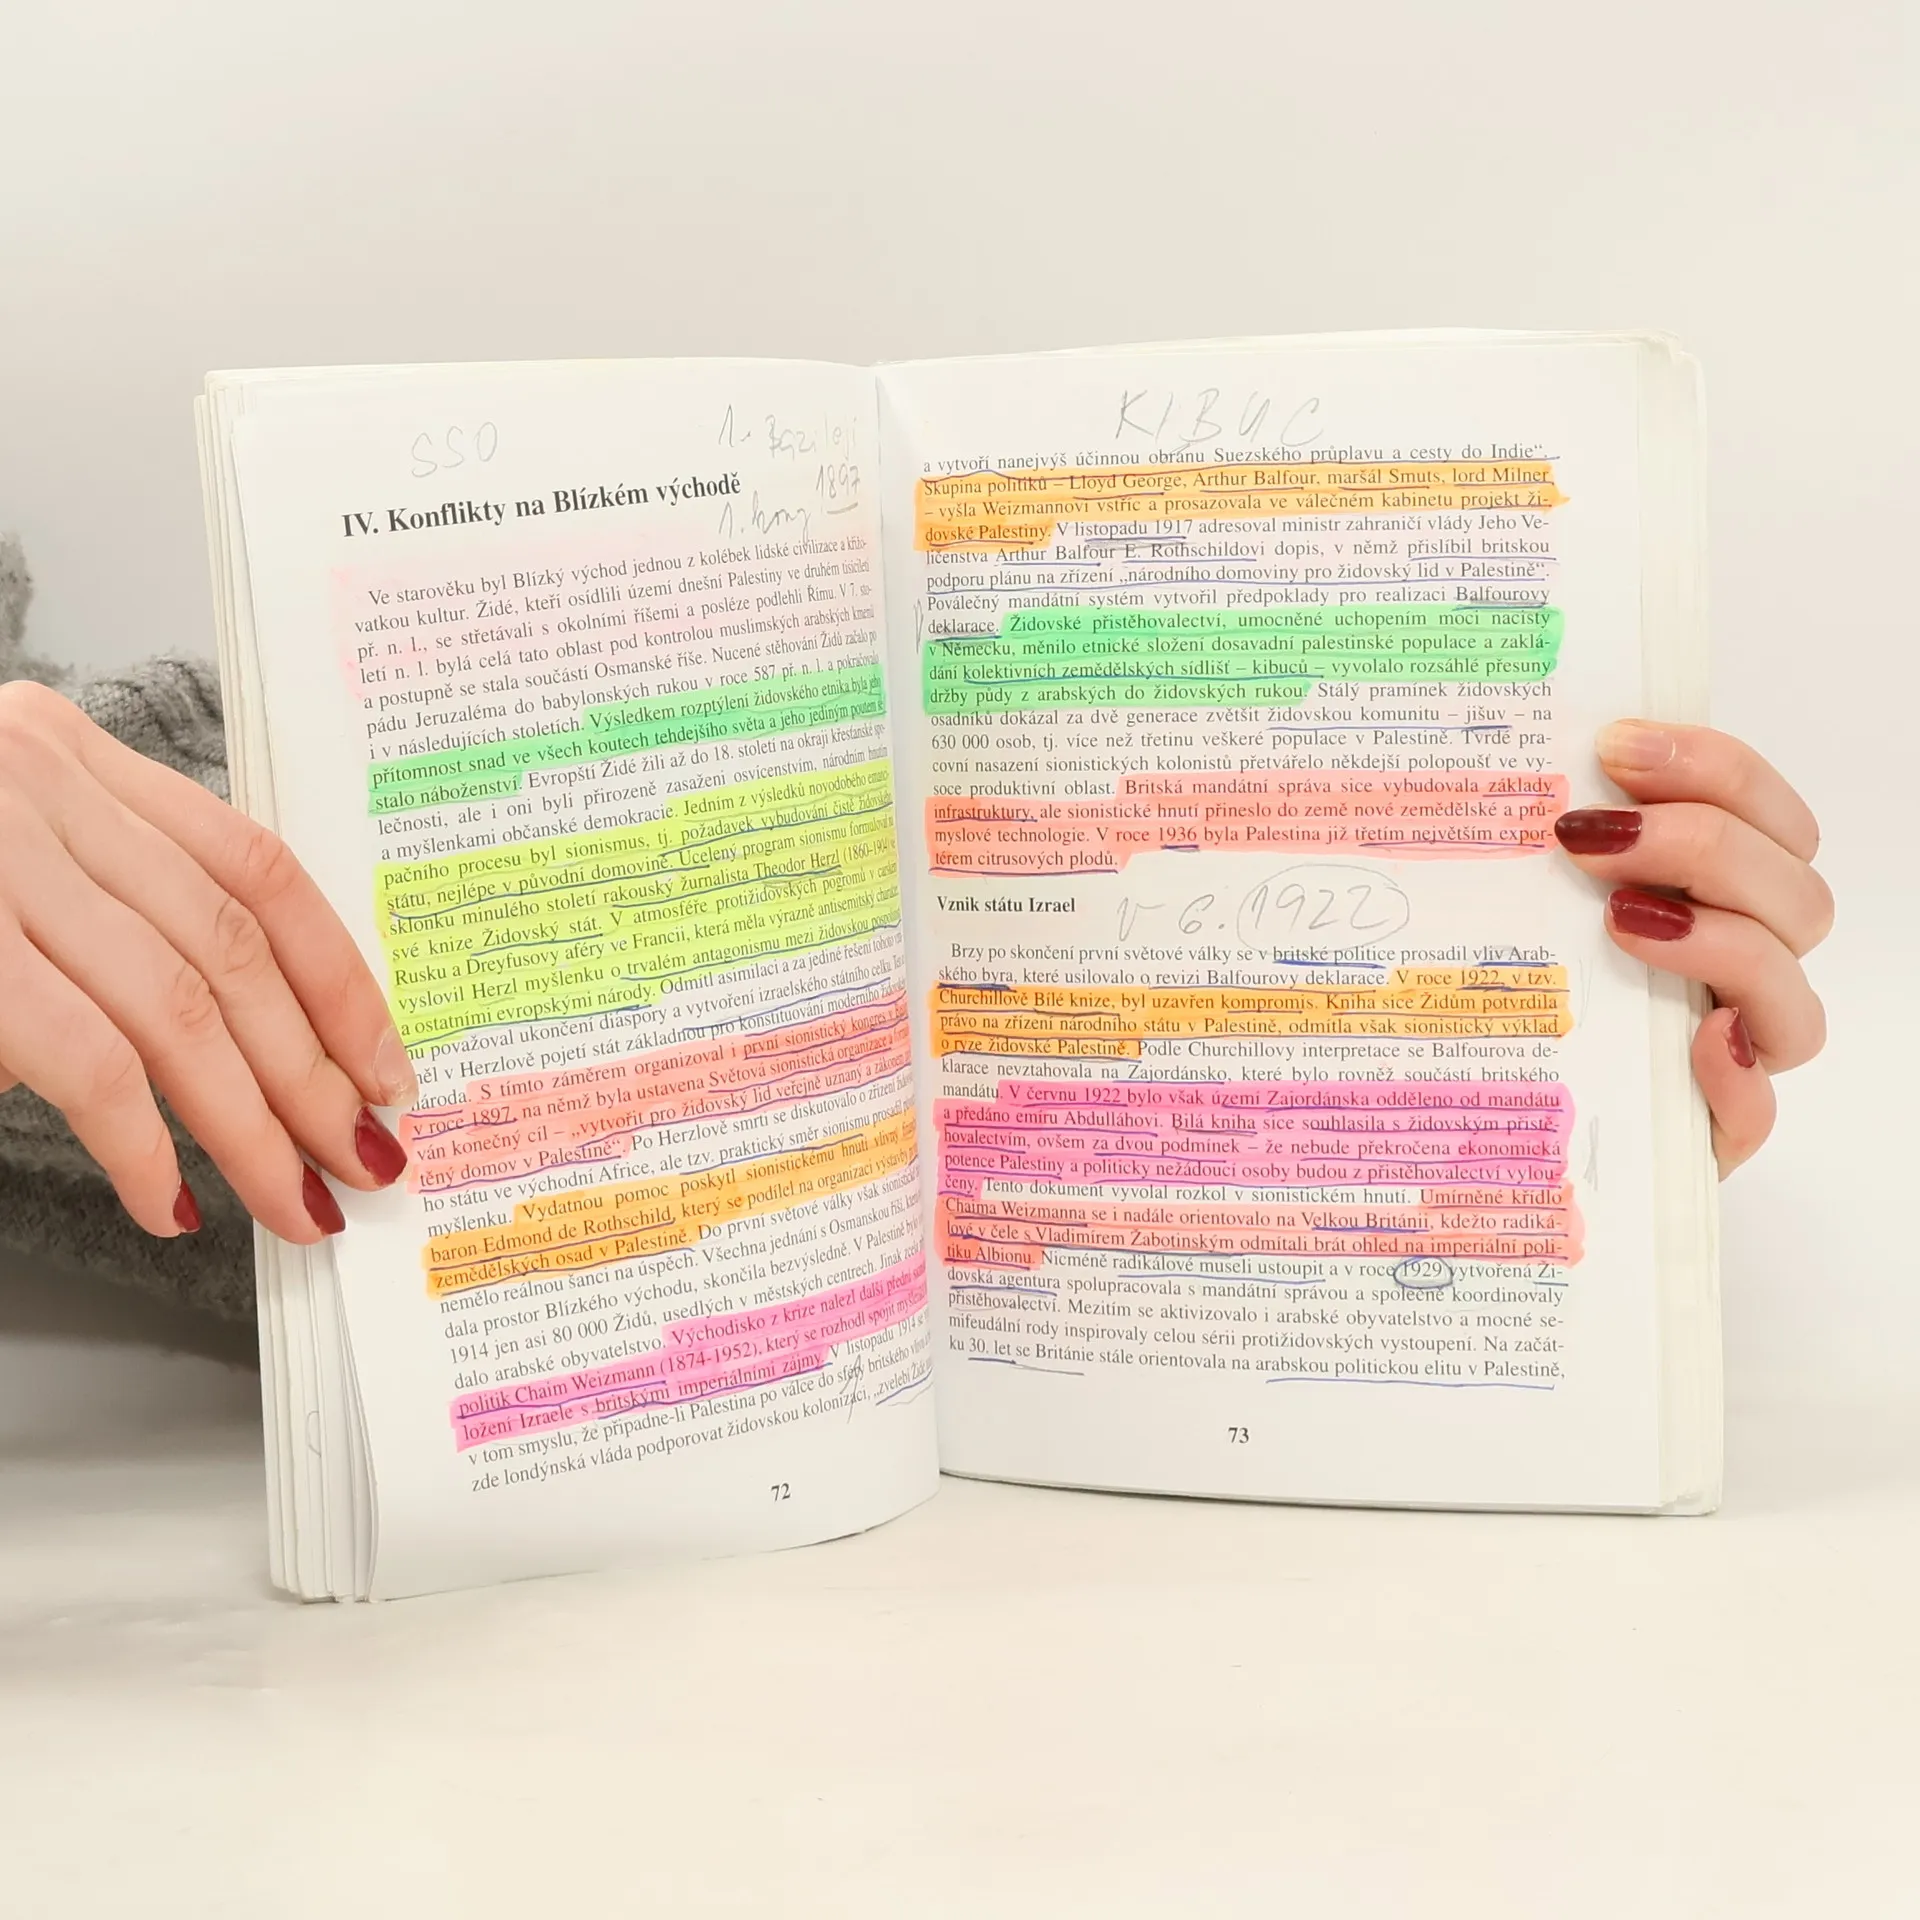 SSO
1. Bazileji
1897
1. kong
IV. Konflikty na Blízkém východě
Ve starověku byl Blízký východ jednou z kolébek lidské civilizace a křižo-
vatkou kultur. Židé, kteří osídlili území dnešní Palestiny ve druhém tisíciletí
př. n. l., se střetávali s okolními říšemi a posléze podlehli Římu. V 7. sto-
letí n. l. bylá celá tato oblast pod kontrolou muslimských arabských kmenů
a postupně se stala součástí Osmanské říše. Nucené stěhování Židů začalo po
pádu Jeruzaléma do babylonských rukou v roce 587 př. n. l. a pokračovalo
i v následujících stoletích. Výsledkem rozptýlení židovského etnika byla jeho
přítomnost snad ve všech koutech tehdejšího světa a jeho jediným poutem se
stalo náboženství. Evropští Židé žili až do 18. století na okraji křesťanské spo-
lečnosti, ale i oni byli přirozeně zasaženi osvícenstvím, národním hnutím
a myšlenkami občanské demokracie. Jedním z výsledků novodobého emanci-
pačního procesu byl sionismus, tj. požadavek vybudování čistě židovského
státu, nejlépe v původní domovině. Ucelený program sionismu formuloval na
sklonku minulého století rakouský žurnalista Theodor Herzl (1860-1904) ve
své knize Židovský stát. V atmosféře protižidovských pogromů v carském
Rusku a Dreyfusovy aféry ve Francii, která měla výrazně antisemitský charakter,
vyslovil Herzl myšlenku o trvalém antagonismu mezi židovskou pospolitostí
a ostatními evropskými národy. Odmítl asimilaci a za jediné řešení tohoto
nu považoval ukončení diaspory a vytvoření izraelského státního celku. Ten
něl v Herzlově pojetí stát základnou pro konstituování moderního židovského
národa. S tímto záměrem organizoval i první sionistický kongres v
v roce 1897, na němž byla ustavena Světová sionistická organizace a
ván konečný cíl – „vytvořit pro židovský lid veřejně uznaný a zákonem
těný domov v Palestině“. Po Herzlově smrti se diskutovalo o zřízení
ho státu ve východní Africe, ale tzv. praktický směr sionismu prosadil
myšlenku. Vydatnou pomoc poskytl sionistickému hnutí vlivný
baron Edmond de Rothschild, který se podílel na organizaci výstavby
zemědělských osad v Palestině. Do první světové války však sionistické
nemělo reálnou šanci na úspěch. Všechna jednání s Osmanskou říší,
dala prostor Blízkého východu, skončila bezvýsledně. V Palestině bylo
1914 jen asi 80 000 Židů, usedlých v městských centrech. Jinak zcela
dalo arabské obyvatelstvo. Východisko z krize nalezl další přední
politik Chaim Weizmann (1874-1952), který se rozhodl spojit
ložení Izraele s britskými imperiálními zájmy. V listopadu 1914 se
v tom smyslu, že připadne-li Palestina po válce do sféry britského vlivu
zde londýnská vláda podporovat židovskou kolonizaci, „zvelebí Židé
72
KIBUC
a vytvoří nanejvýš účinnou obranu Suezského průplavu a cesty do Indie“.
Skupina politiků – Lloyd George, Arthur Balfour, maršál Smuts, lord Milner
– vyšla Weizmannovi vstříc a prosazovala ve válečném kabinetu projekt ži-
dovské Palestiny. V listopadu 1917 adresoval ministr zahraničí vlády Jeho Ve-
ličenstva Arthur Balfour E. Rothschildovi dopis, v němž přislíbil britskou
podporu plánu na zřízení „národního domoviny pro židovský lid v Palestině“.
Poválečný mandátní systém vytvořil předpoklady pro realizaci Balfourovy
deklarace. Židovské přistěhovalectví, umocněné uchopením moci nacisty
v Německu, měnilo etnické složení dosavadní palestinské populace a zaklá-
dání kolektivních zemědělských sídlišť – kibuců – vyvolalo rozsáhlé přesuny
držby půdy z arabských do židovských rukou. Stálý pramínek židovských
osadníků dokázal za dvě generace zvětšit židovskou komunitu – jišuv – na
630 000 osob, tj. více než třetinu veškeré populace v Palestině. Tvrdé pra-
covní nasazení sionistických kolonistů přetvářelo někdejší polopoušť ve vy-
soce produktivní oblast. Britská mandátní správa sice vybudovala základy
infrastruktury, ale sionistické hnutí přineslo do země nové zemědělské a prů-
myslové technologie. V roce 1936 byla Palestina již třetím největším expor-
térem citrusových plodů.
Vznik státu Izrael
v 6. 1922
Brzy po skončení první světové války se v britské politice prosadil vliv Arab-
ského byra, které usilovalo o revizi Balfourovy deklarace. V roce 1922, v tzv.
Churchillově Bílé knize, byl uzavřen kompromis. Kniha sice Židům potvrdila
právo na zřízení národního státu v Palestině, odmítla však sionistický výklad
o ryze židovské Palestině. Podle Churchillovy interpretace se Balfourova de-
klarace nevztahovala na Zajordánsko, které bylo rovněž součástí britského
mandátu. V červnu 1922 bylo však území Zajordánska odděleno od mandátu
a předáno emíru Abdulláhovi. Bílá kniha sice souhlasila s židovským přistě-
hovalectvím, ovšem za dvou podmínek – že nebude překročena ekonomická
potence Palestiny a politicky nežádoucí osoby budou z přistěhovalectví vylou-
čeny. Tento dokument vyvolal rozkol v sionistickém hnutí. Umírněné křídlo
Chaima Weizmanna se i nadále orientovalo na Velkou Británii, kdežto radiká-
lové v čele s Vladimírem Žabotinským odmítali brát ohled na imperiální poli-
tiku Albionu. Nicméně radikálové museli ustoupit a v roce 1929 vytvořená Ži-
dovská agentura spolupracovala s mandátní správou a společně koordinovaly
přistěhovalectví. Mezitím se aktivizovalo i arabské obyvatelstvo a mocné se-
mifeudální rody inspirovaly celou sérii protižidovských vystoupení. Na začát-
ku 30. let se Británie stále orientovala na arabskou politickou elitu v Palestině,
73